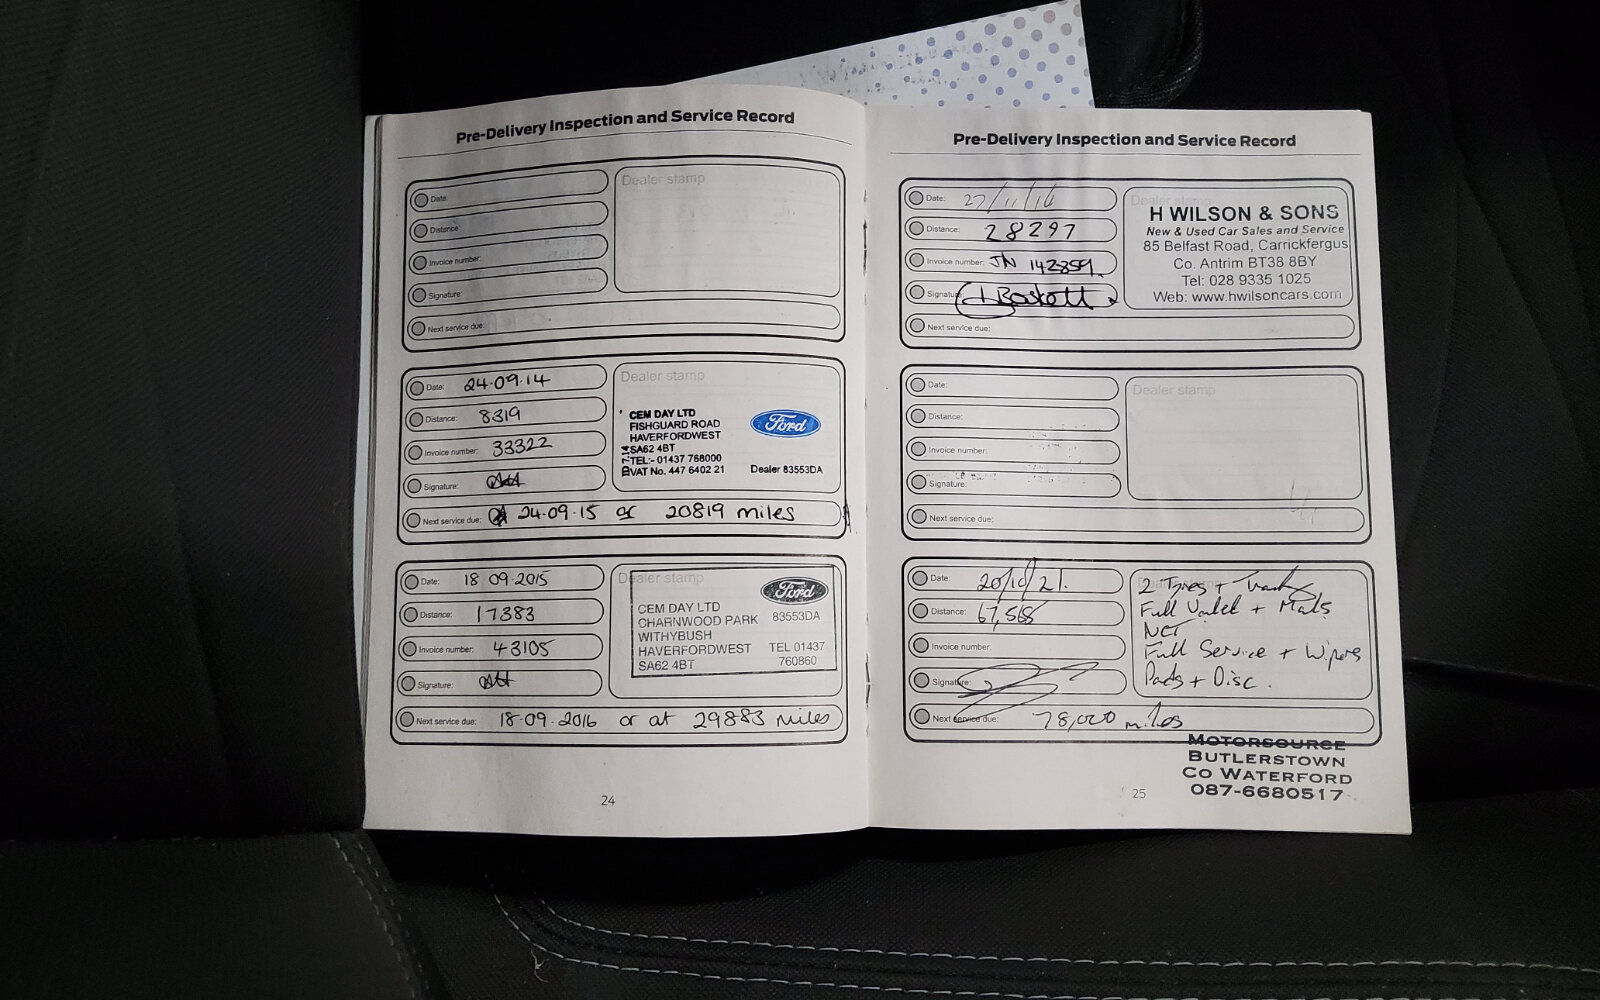 Pre-Delivery Inspection and Service Record
Date:
Distance:
Invoice number:
Signature:
Next service due:
Dealer stamp
Date: 24.09.14
Distance: 8319
Invoice number: 33322
Signature:
Next service due: 24.09.15 or 20819 miles
Dealer stamp
CEM DAY LTD
FISHGUARD ROAD
HAVERFORDWEST
SA62 4BT
TEL:- 01437 768000
VAT No. 447 6402 21
Ford
Dealer 83553DA
Date: 18 09.2015
Distance: 17383
Invoice number: 43105
Signature:
Next service due: 18.09.2016 or at 29883 miles
Dealer stamp
Ford
CEM DAY LTD
CHARNWOOD PARK 83553DA
WITHYBUSH
HAVERFORDWEST TEL 01437
SA62 4BT 760860
24
Pre-Delivery Inspection and Service Record
Date: 27/11/16
Distance: 28297
Invoice number: JN 142859.
Signature:
Next service due:
Dealer stamp
H WILSON & SONS
New & Used Car Sales and Service
85 Belfast Road, Carrickfergus
Co. Antrim BT38 8BY
Tel: 028 9335 1025
Web: www.hwilsoncars.com
Date:
Distance:
Invoice number:
Signature:
Next service due:
Dealer stamp
Date: 20/10/21.
Distance: 67,565
Invoice number:
Signature:
Next service due: 78,000 miles
2 Tyres +
Full Valet + Mats
NCT
Full Service + Wipers
Pads + Disc.
MOTORSOURCE
BUTLERSTOWN
CO WATERFORD
087-6680517
25